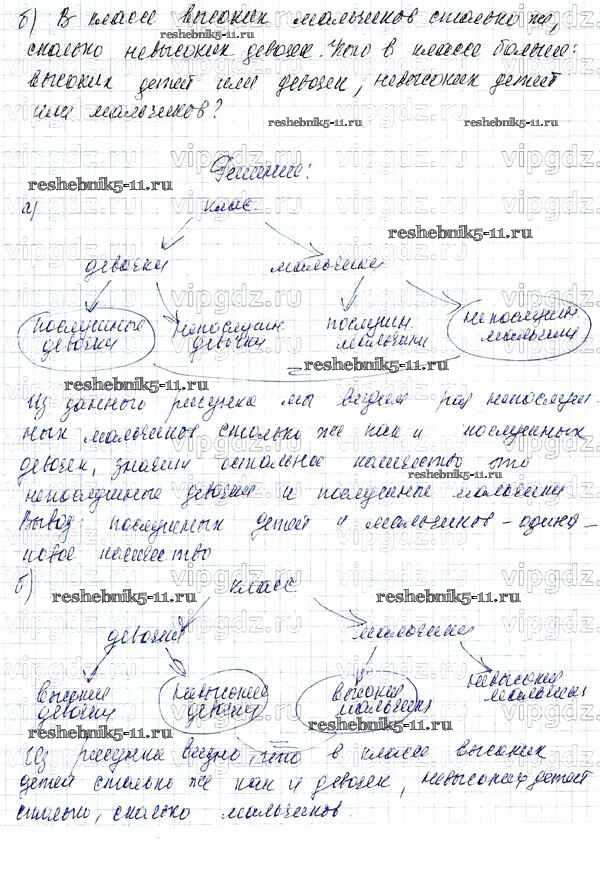 б) В классе высоких мальчиков столько же,
сколько невысоких девочек. Кого в классе больше:
высоких детей или девочек, невысоких детей
или мальчиков?
reshebnik5-11.ru
reshebnik5-11.ru
reshebnik5-11.ru
Решение:
reshebnik5-11.ru
а) класс
reshebnik5-11.ru
девочки мальчики
послушные девочки
непослушн девочки
послушн мальчики
непослушн мальчики
=
reshebnik5-11.ru
reshebnik5-11.ru
Из данного рисунка мы видем раз непослуш
ных мальчиков столько же как и послушных
девочек, значит остальное количество это
reshebnik5-11.ru
непослушные девочки и послушные мальчики
Вывод: послушных детей и мальчиков - одина-
ковое количество
б) класс
reshebnik5-11.ru
reshebnik5-11.ru
девочки мальчики
высокие девочки
невысокие девочки
высокие мальчики
невысокие мальчики
=
reshebnik5-11.ru
reshebnik5-11.ru
Из рисунка видно, что в классе высоких
детей столько же как и девочек, невысоких детей
столько, сколько мальчиков.
vipgdz.ru